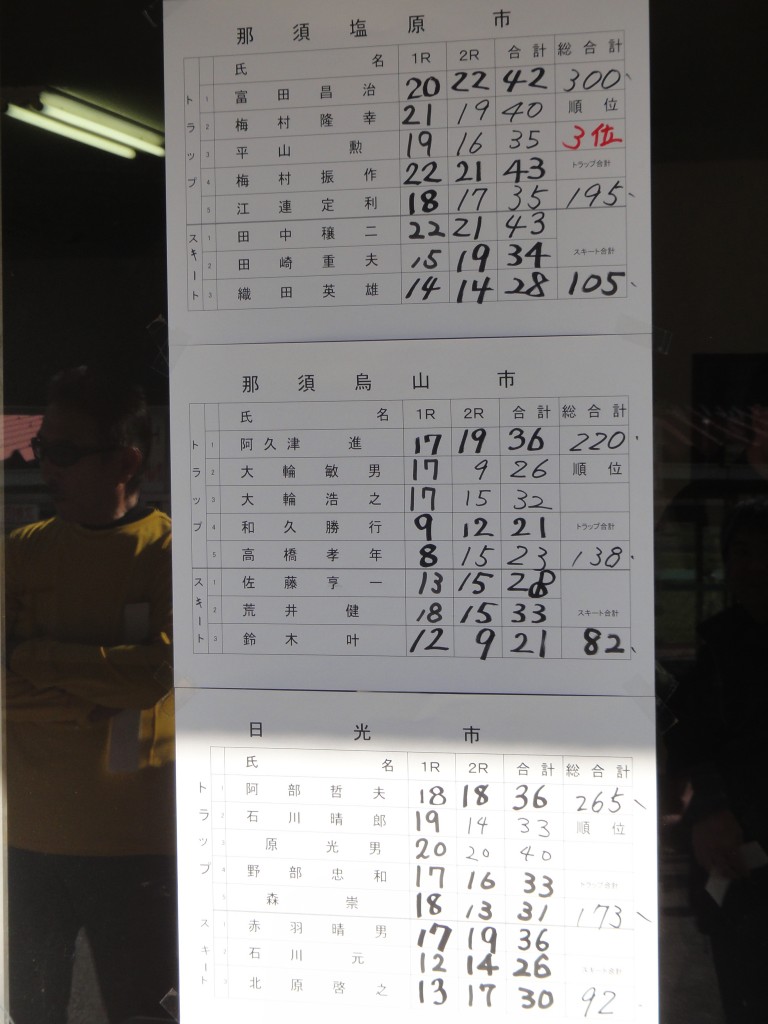 那須塩原市
氏名 1R 2R 合計 総合計
トラップ
1 富田昌治 20 22 42 300
2 梅村隆幸 21 19 40 順位
3 平山勲 19 16 35 3位
4 梅村振作 22 21 43 トラップ合計
5 江連定利 18 17 35 195
スキート
1 田中穣二 22 21 43
2 田崎重夫 15 19 34 スキート合計
3 織田英雄 14 14 28 105
那須烏山市
氏名 1R 2R 合計 総合計
トラップ
1 阿久津進 17 19 36 220
2 大輪敏男 17 9 26 順位
3 大輪浩之 17 15 32
4 和久勝行 9 12 21 トラップ合計
5 高橋孝年 8 15 23 138
スキート
1 佐藤亨一 13 15 28
2 荒井健 18 15 33 スキート合計
3 鈴木叶 12 9 21 82
日光市
氏名 1R 2R 合計 総合計
トラップ
1 阿部哲夫 18 18 36 265
2 石川晴郎 19 14 33 順位
3 原光男 20 20 40
4 野部忠和 17 16 33 トラップ合計
5 森崇 18 13 31 173
スキート
1 赤羽晴男 17 19 36
2 石川元 12 14 26 スキート合計
3 北原啓之 13 17 30 92